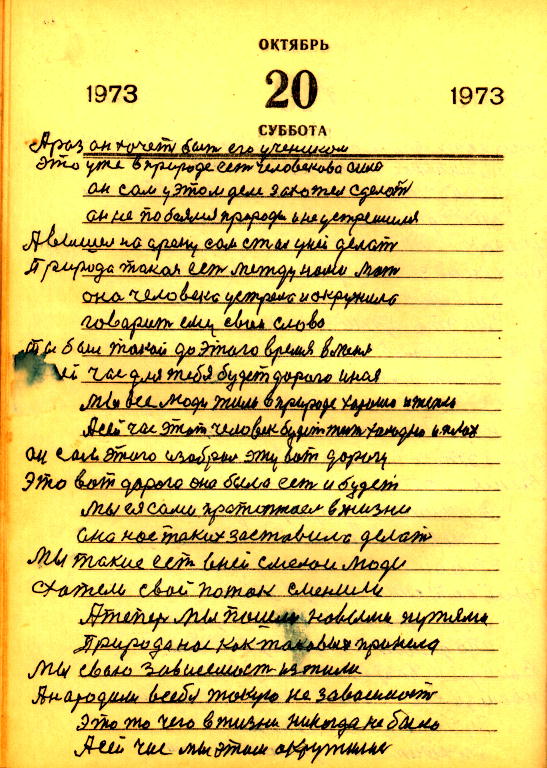 ОКТЯБРЬ
1973 20 1973
СУББОТА
А раз он хочет быт его учеником
Это уже в природе ест человекова сила
он сам у этом деле захотел сделат
он не побоялся природы и не устрешился
А вышел на арену сам стал у ней делат
Природа такая ест между нами мат
она человека устрела и окружила
говорит ему свое слово
Ты был такой до этого время в меня
час для тебя будет дорога иная
Мы все люди жили в природе хорошо и тепло
А сей час этот человек будет жит холодно и плохо
он сам этого избрал эту вот дорогу
Это вот дорога она была ест и будет
Мы ея сами протоптаем в жизни
она нас таких заставила делат
Мы такие ест в ней смелои люди
схотели свой поток сменили
А тепер мы пошли новыми путями
Природа нас как таковых приняла
Мы свою зависемост изжили
А народили в себя такую не зависимост
Это то чего в жизни никогда не было
А сей час мы этим окружились